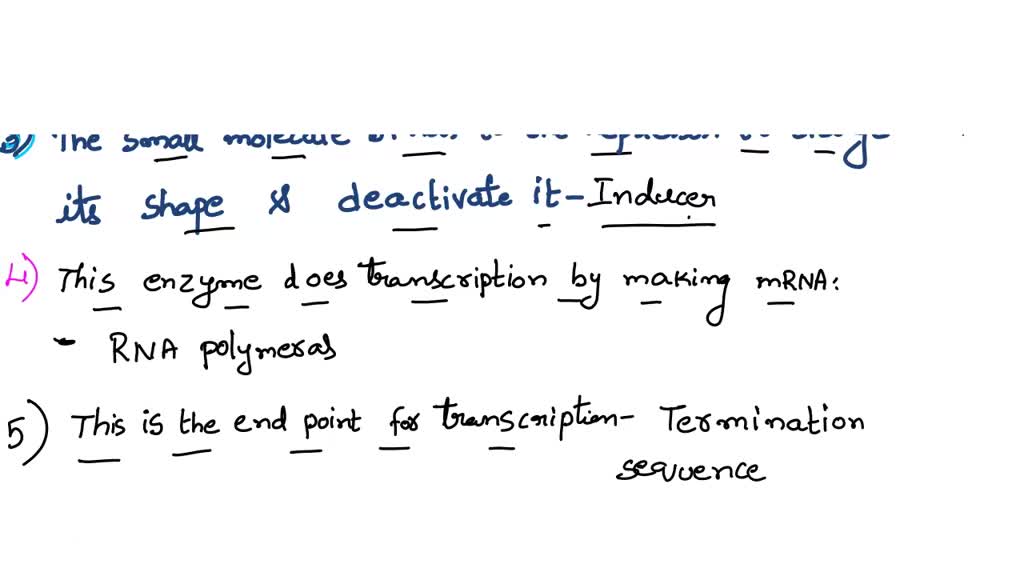 3) The small molecule to the to
its shape & deactivate it - Inducer
4) This enzyme does transcription by making mRNA:
- RNA polymeras
5) This is the end point for transcription - Termination
sequence